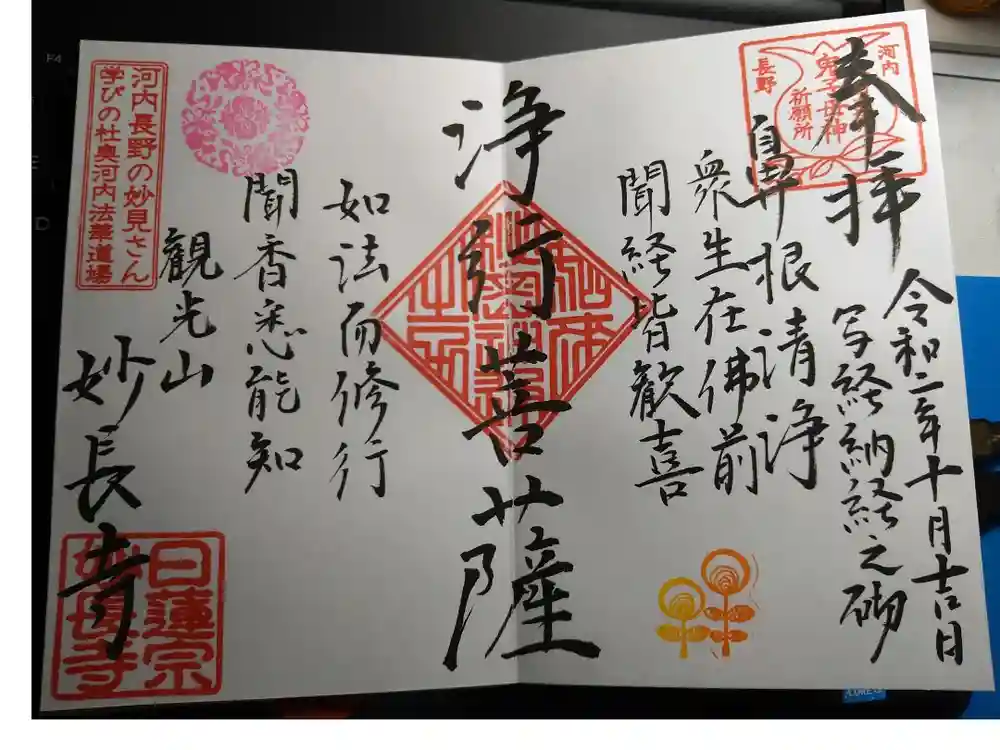 奉拝
令和二年十月吉日
写経納経之砌
河内
長野
鬼子母神
祈願所
鼻根清浄
衆生在佛前
聞経皆歓喜
浄行菩薩
如法而修行
聞香悉能知
観光山
妙長寺
河内長野の妙見さん
学びの杜奥河内法華道場
日蓮宗
妙長寺
F4